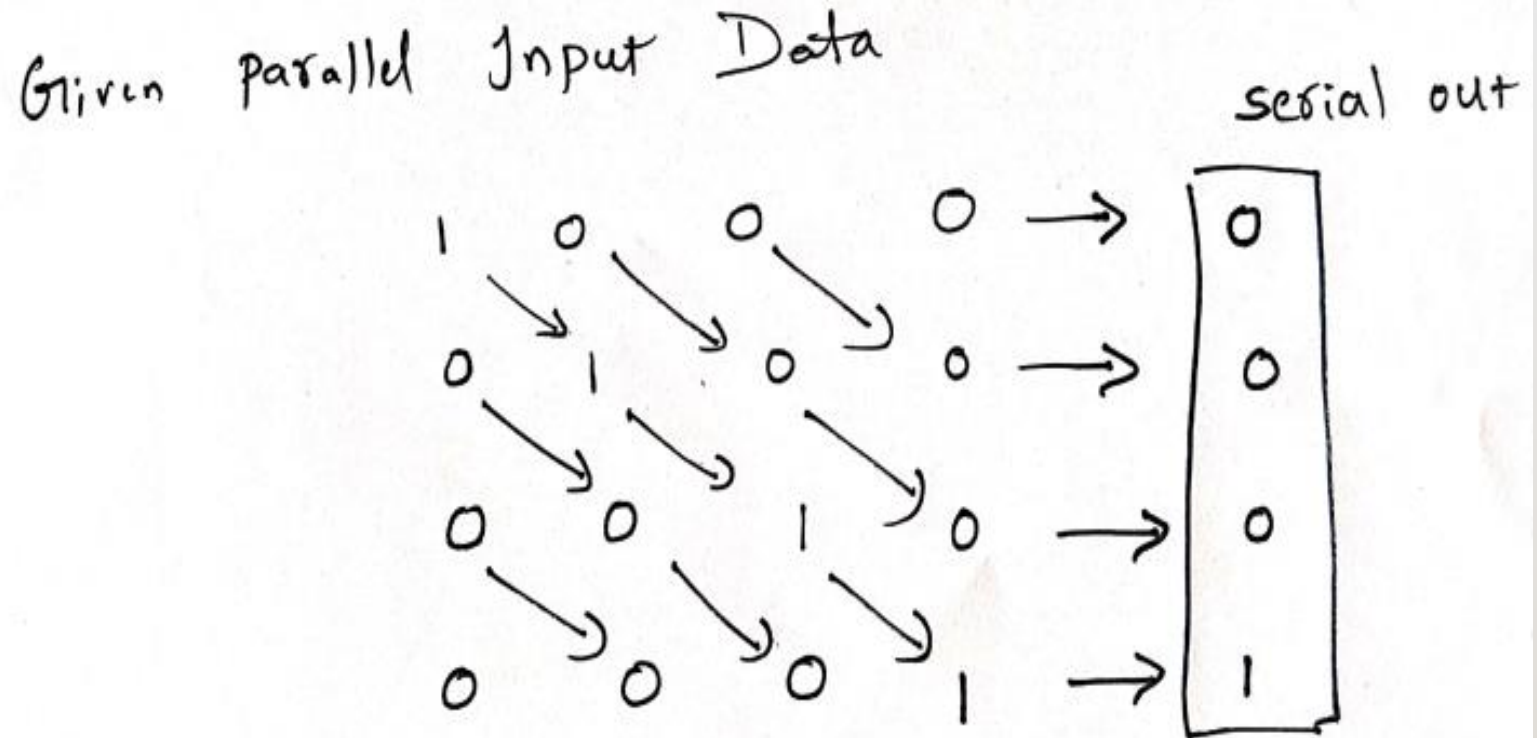 Given parallel Input Data
serial out
1 0 0 0 → 0
0 1 0 0 → 0
0 0 1 0 → 0
0 0 0 1 → 1